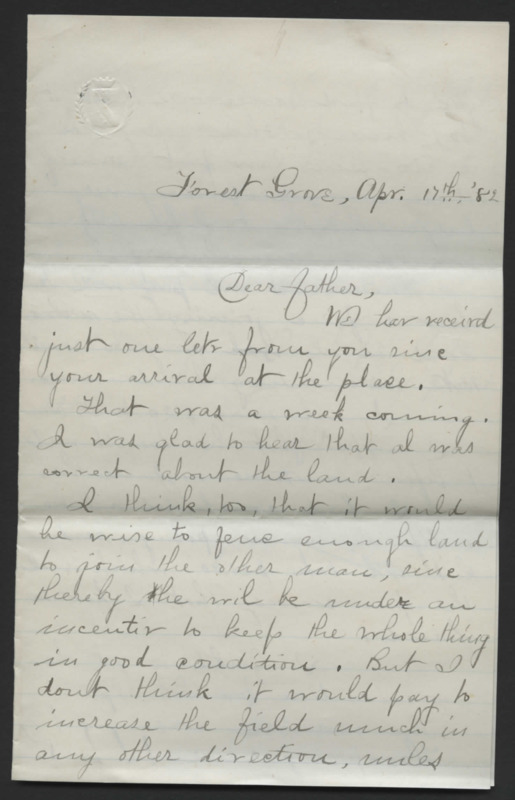 Forest Grove, Apr. 17th '82
Dear father,
We hav receivd
just one letr from you sinc
your arrival at the place.
That was a week coming.
I was glad to hear that al was
correct about the land.
I think, too, that it would
be wise to fenc enough land
to join the other man, sinc
thereby he wil be under an
incentiv to keep the whole thing
in good condition. But I
dont think it would pay to
increase the field much in
any other direction, unles